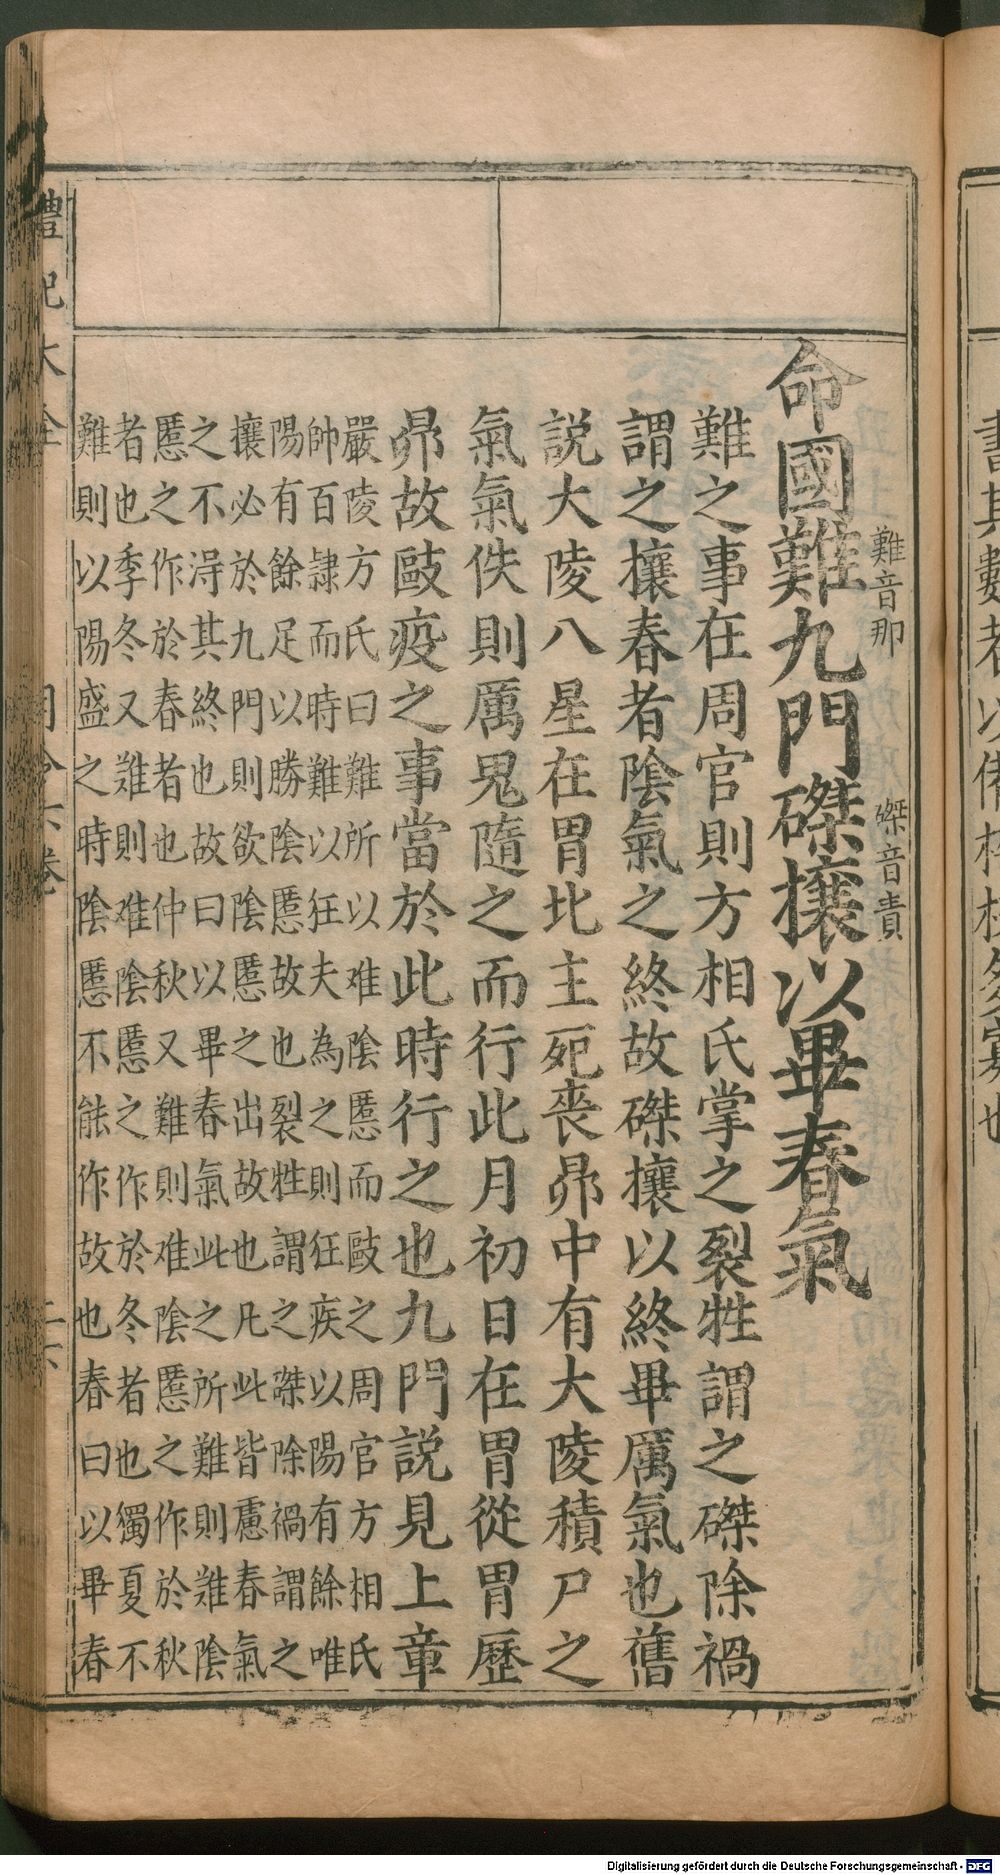 命國難九門磔攘以畢春氣
難音那
磔音責
難之事在周官則方相氏掌之裂牲謂之磔除禍
謂之攘春者陰氣之終故磔攘以終畢厲氣也舊
説大陵八星在胃北主死喪昴中有大陵積尸之
氣氣佚則厲鬼隨之而行此月初日在胃從胃歷
昴故敺疫之事當於此時行之也九門説見上章
嚴陵方氏曰難所以难陰慝而敺之周官方相氏
帥百隸而時難以狂夫為之則狂疾以陽有餘唯
陽有餘足以勝陰慝故也裂牲謂之磔除禍謂之
攘必於九門則欲陰慝之出故也凡此皆慮春氣
之不得其終也故曰以畢春氣此之所難則难陰
慝之作於春者也仲秋又難則难陰慝之作於秋
者也季冬又难則难陰慝之作於冬者也獨夏不
難則以陽盛之時陰慝不能作故也春曰以畢春
禮記大全
月令六卷
書其數者以備稽校多寡也
Digitalisierung gefördert durch die Deutsche Forschungsgemeinschaft - DFG